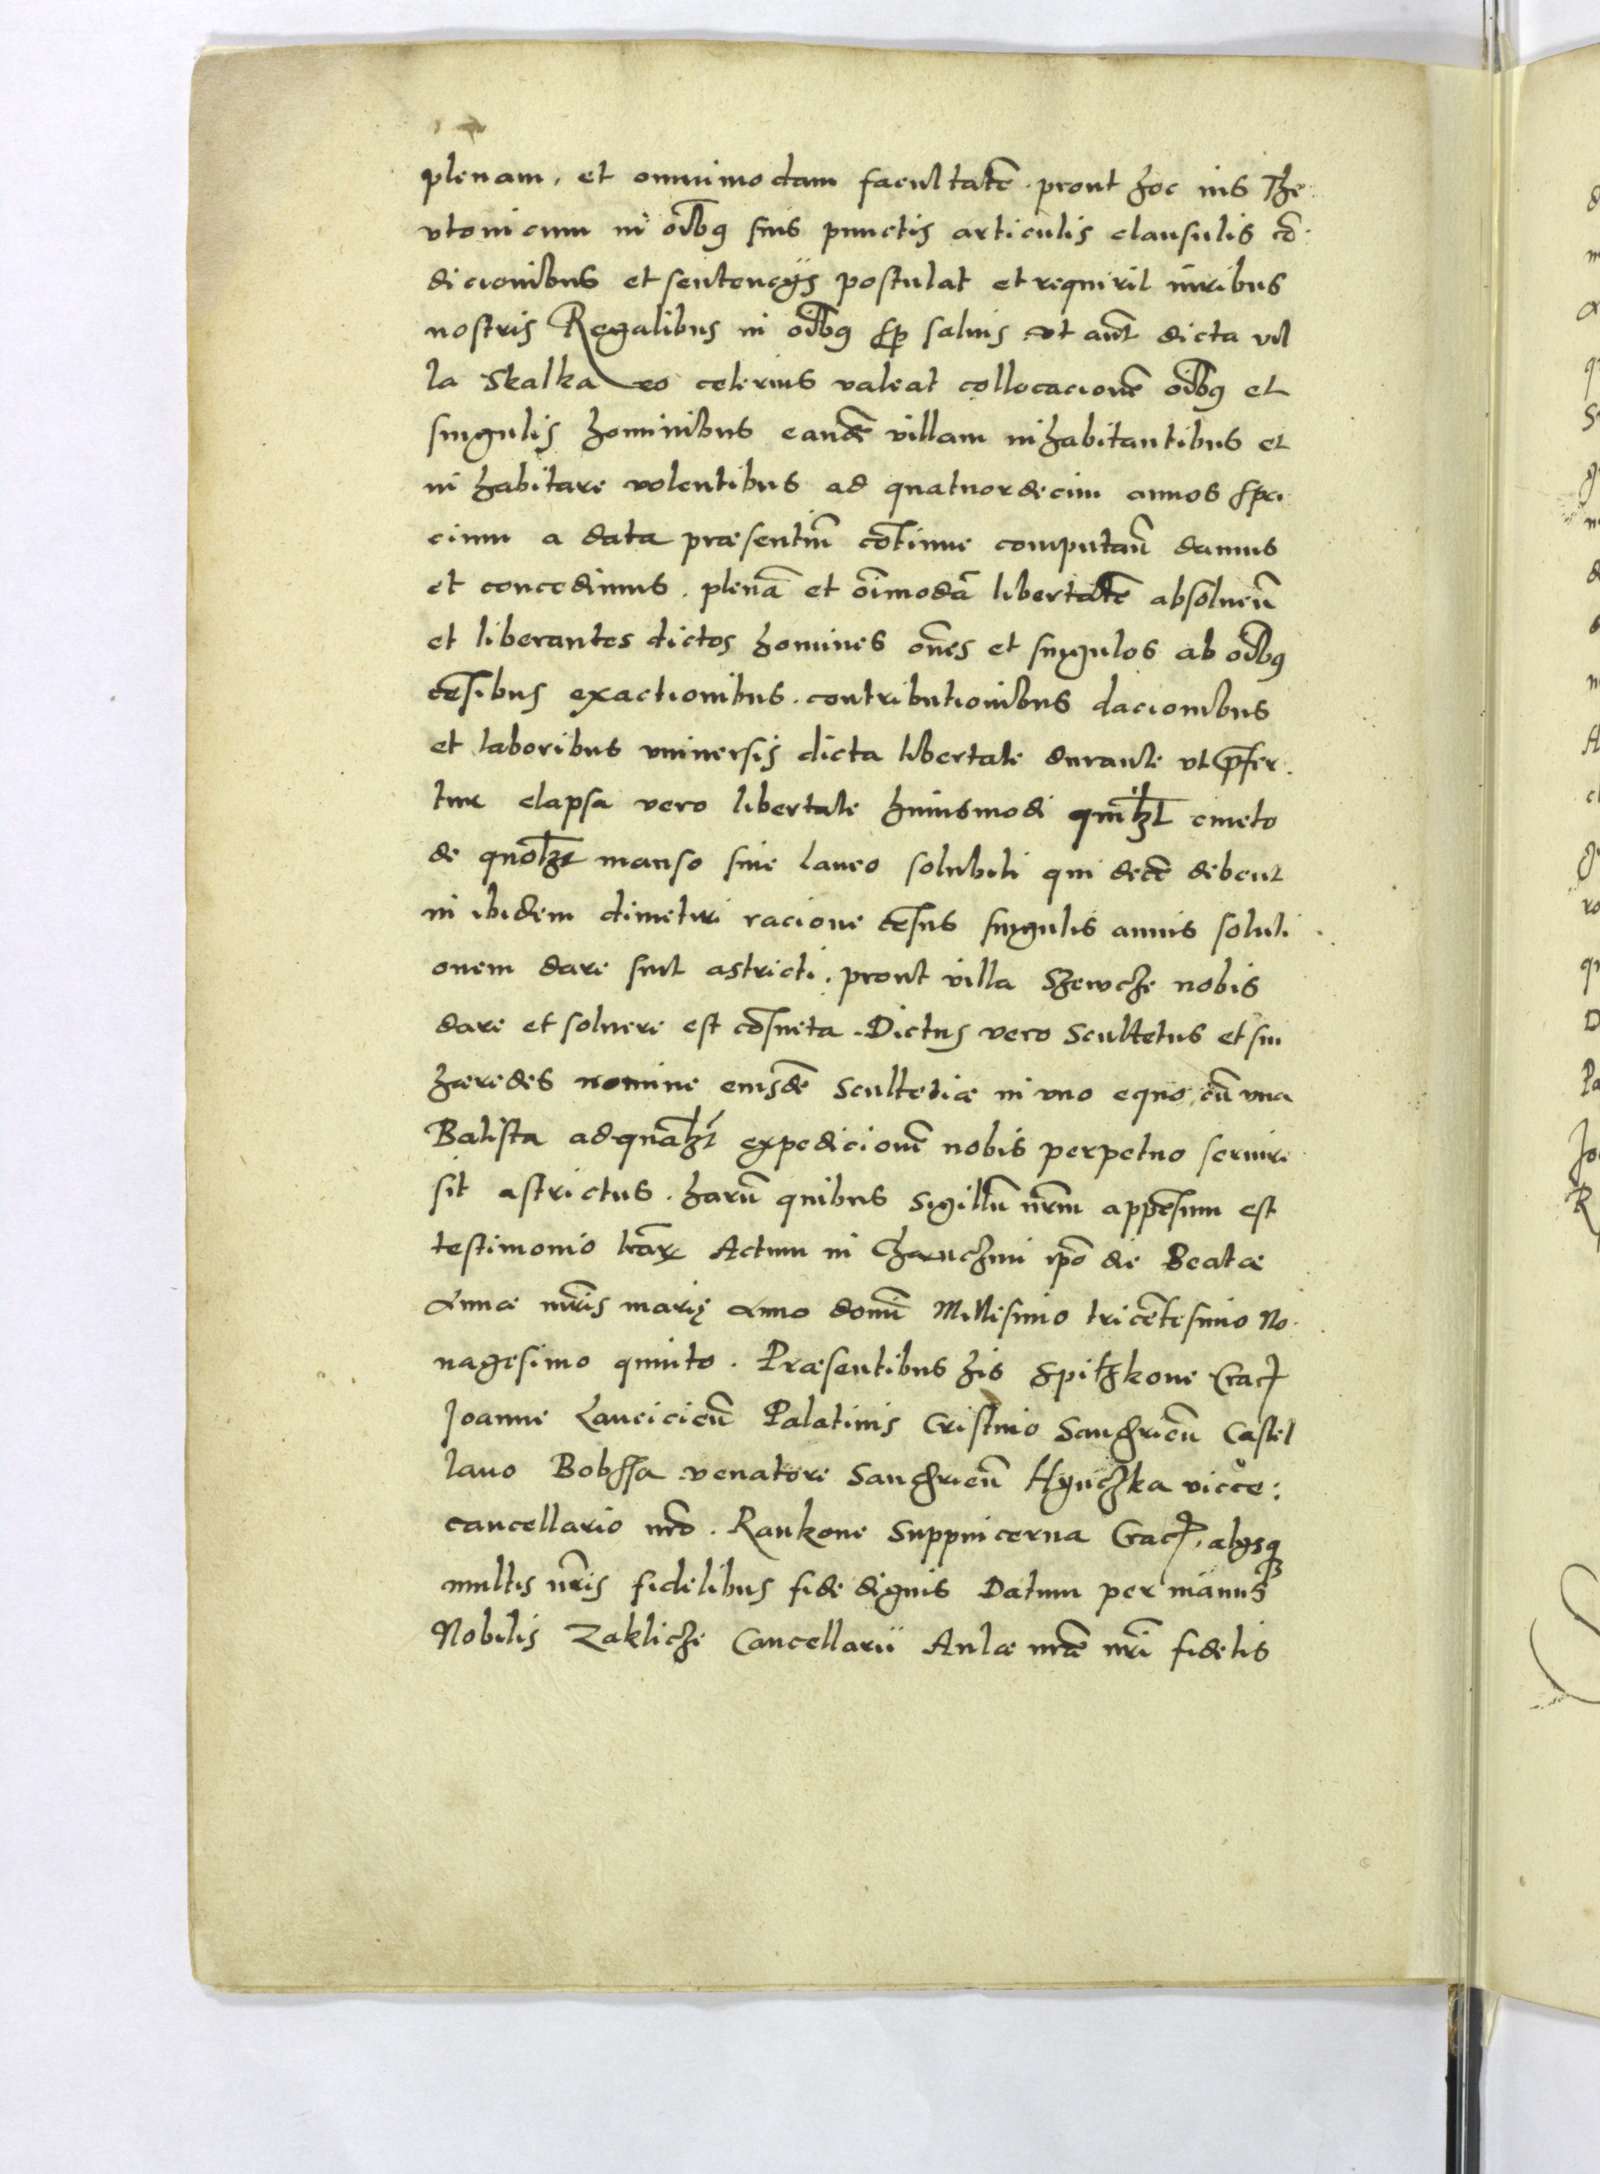 plenam, et omnimodam facultatē. prout hoc ius The
vtonicum in oībꝰ suis punctis articulis clausulis cō
dicionibus et sentencijs postulat et requirit iuribus
nostris Regalibus in oībꝰ sp̄ saluis vt aūt dicta vil
la Skalka eo celerius valeat collocacionē oībꝰ et
singulis hominibus eandē villam inhabitantibus et
inhabitare volentibus ad quatuordecim annos
a data præsentiū cōtinue computañ damus
et concedimus. plenā et oīmodā libertatē absolueñ
et liberantes dictos homines oēs et singulos ab oībꝰ
cēsibus exactionibus. contributionibus dacionibus
et laboribus vniuersis dicta libertate durante vt p̄fer
tur elapsa vero libertate huiusmodi quilꝫt cmeto
de quolꝫt manso siue laneo solubili qui decē debent
inibidem dimetiri racione cēsus singulis annis soluti
onem dare sint astricti. prout villa Szewcze nobis
dare et soluere est cōsueta. Dictus vero Scultetus et sui
hæredes nomine eiusdē Scultetiæ in vno equo cū vna
Balista ad quālꝫt expedicionē nobis perpetuo seruire
sit astrictus. harū quibus Sigillū nr̄m appēsum est
testimonio lr̄aꝝ Actum in Chanczini ip̄o die Beatæ
Annæ mr̄is marię Anno domī Millesimo tricētesimo No
nagesimo quinto. Præsentibus his Spitzkone Crac̄
Joanne Lancicieñ Palatinis Cristino Sandrieñ Castel
lano Bobssa venatore Sandrieñ Hynczka vicce:
cancellario nr̄o. Rankone Suppincerna Crac̄. alijsqꝫ
multis nr̄is fidelibus fide dignis Datum per manus
Nobilis Zakliche Cancellarii Aulæ nr̄æ nr̄i fidelis